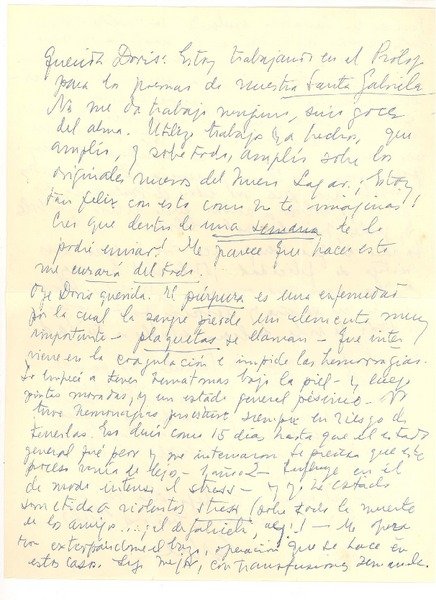 Querida Doris: Estoy trabajando en el Prólogo
para los poemas de nuestra Santa Gabriela.
No me da trabajo ninguno, sino goces
del alma. Utilizo trabajos ya hechos, que
amplío, y sobre todo, amplío sobre los
originales nuevos del Nuevo Lagar. ¡Estoy
tan feliz con esto como no te imaginas!
Creo que dentro de una semana te lo
podré enviar! Me parece que hacer esto
me curará del todo.
Oye Doris querida. El púrpura es una enfermedad
por la cual la sangre pierde un elemento muy
importante - plaquetas se llaman - que inter
viene en la coagulación e impide las hemorragias.
Se empieza a tener hematomas bajo la piel - y luego
puntos morados, y un estado general pésimo - No
tuve hemorragias pero estuve siempre en riesgo de
tenerlas. Eso duró como 15 días, hasta que el estado
general fué peor y me internaron. Se precisa que este
proceso venía de lejos - 1 año o 2 - Influye en él
de modo intenso el stress - y yo he estado
sometida a violentos stress (sobre todo la muerte
de los amigos... ¡el de Gabriela, ay!! - Me opera
ron extirpándome el bazo, operación que se hace en
estos casos. Sigo mejor, con transfusiones semanales.